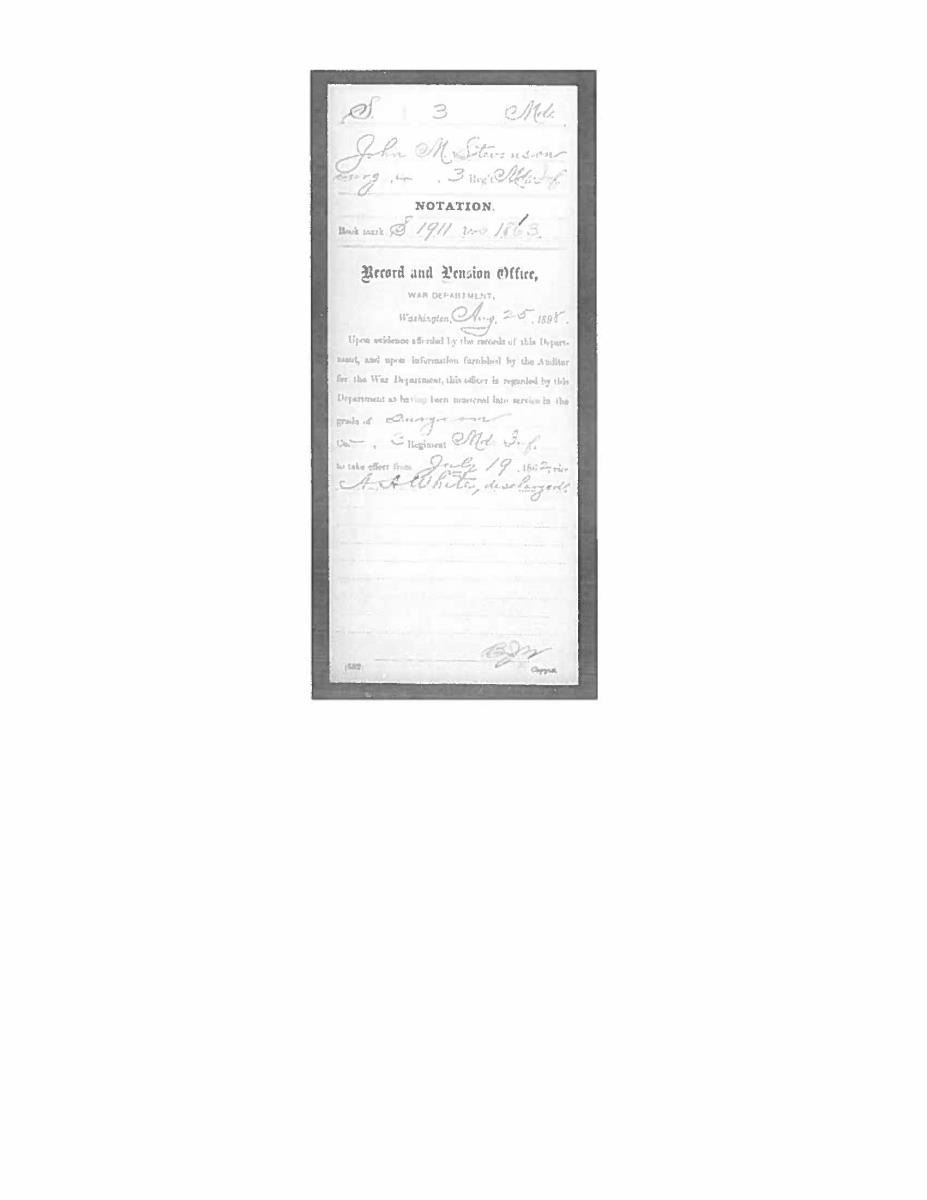 S. 3 Md.
John M. Stevenson
Surg , Co. , 3 Reg't Md. Inf.
NOTATION.
Book mark S 1911 1863.
Record and Pension Office,
WAR DEPARTMENT,
Washington, Aug. 25, 1898.
Upon evidence afforded by the records of this Depart-
ment, and upon information furnished by the Auditor
for the War Department, this officer is regarded by this
Department as having been mustered into service in the
grade of Surgeon
Co. — , 3 Regiment Md. Inf.
to take effect from July 19, 1862, vice
A. A. White, discharged.
(582)
Copyist.